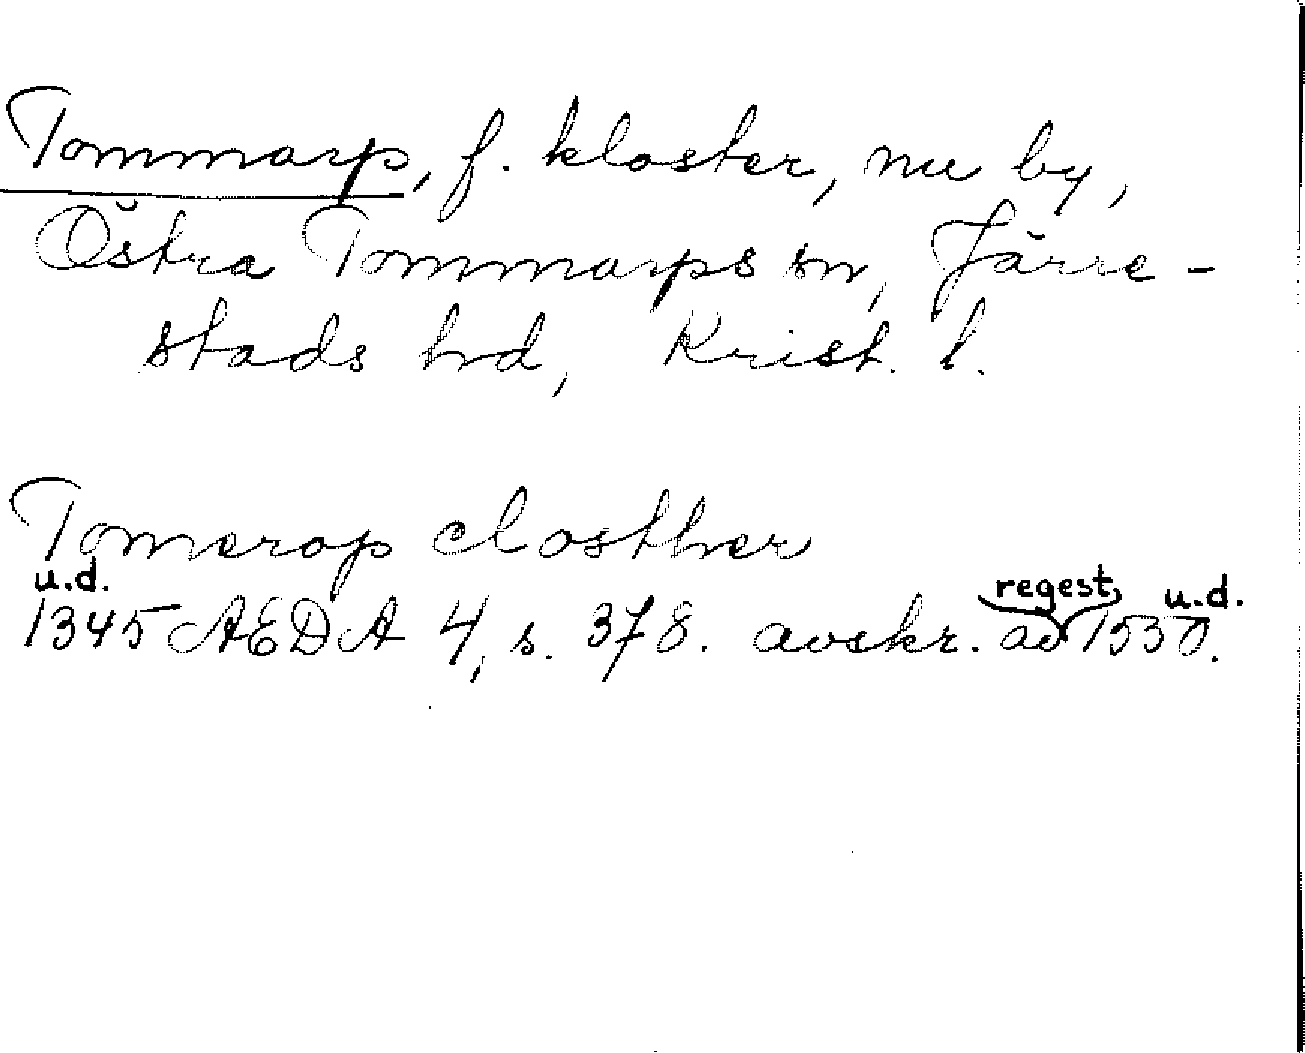 Tommarp, f. kloster, nu by,
Östra Tommarps sn, Järre-
stads hd, Krist. l.
Tomerop closther
u.d. regest u.d.
1345 AEDA 4, s. 378. avskr. av 1530.